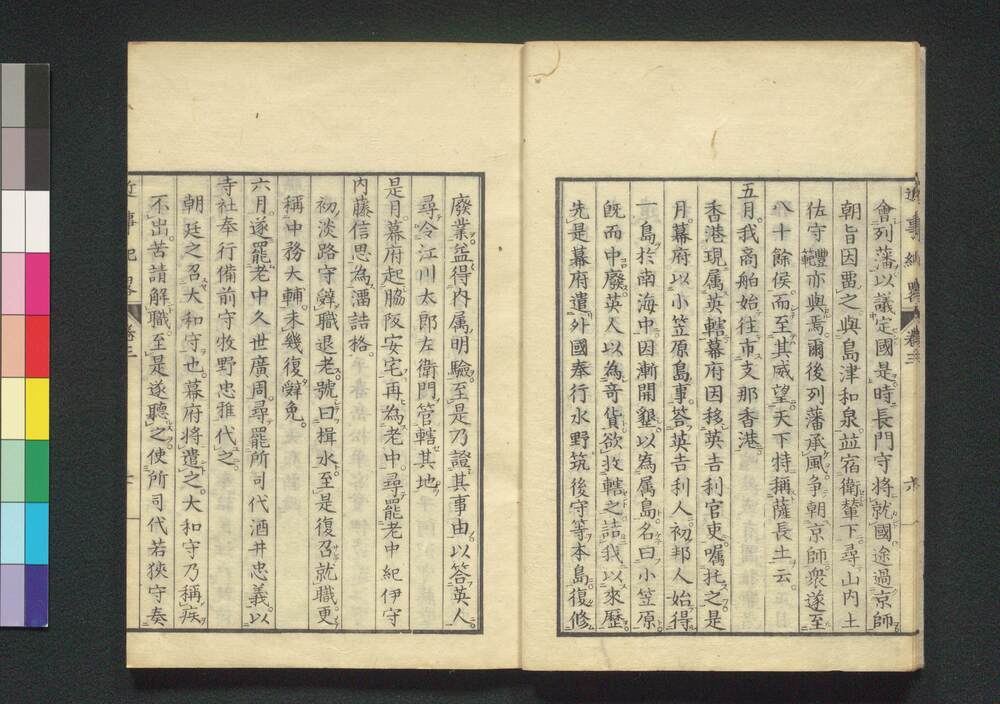 會列藩以議定國是時長門守將就國途過京師
朝旨因畱之與島津和泉竝宿衛輦下尋山内土
佐守豐範亦與焉爾後列藩承風爭朝京師衆遂至
八十餘侯而至其威望天下特稱薩長土云
五月我商舶始往市支那香港
香港現属英轄幕府因移英吉利官吏嘱托之是
月幕府以小笠原島事答英吉利人初邦人始得
一島於南海中因漸開墾以為属島名曰小笠原
既而中廢英人以為奇貨欲收轄之詰我以來歴
先是幕府遣外國奉行水野筑後守等本島復修
廢業益得内属明驗至是乃證其事由以答英人
尋令江川太郎左衛門管轄其地
是月幕府起脇阪安宅再為老中尋罷老中紀伊守
内藤信思為溜詰格
初淡路守辭職退老號曰揖水至是復召就職更
稱中務大輔未幾復辭免
六月遂罷老中久世廣周尋罷所司代酒井忠義以
寺社奉行備前守牧野忠雅代之
朝廷之召大和守也幕府將遣之大和守乃稱疾
不出苦請解職至是遂聽之使所司代若狹守奏
近事紀畧
卷三